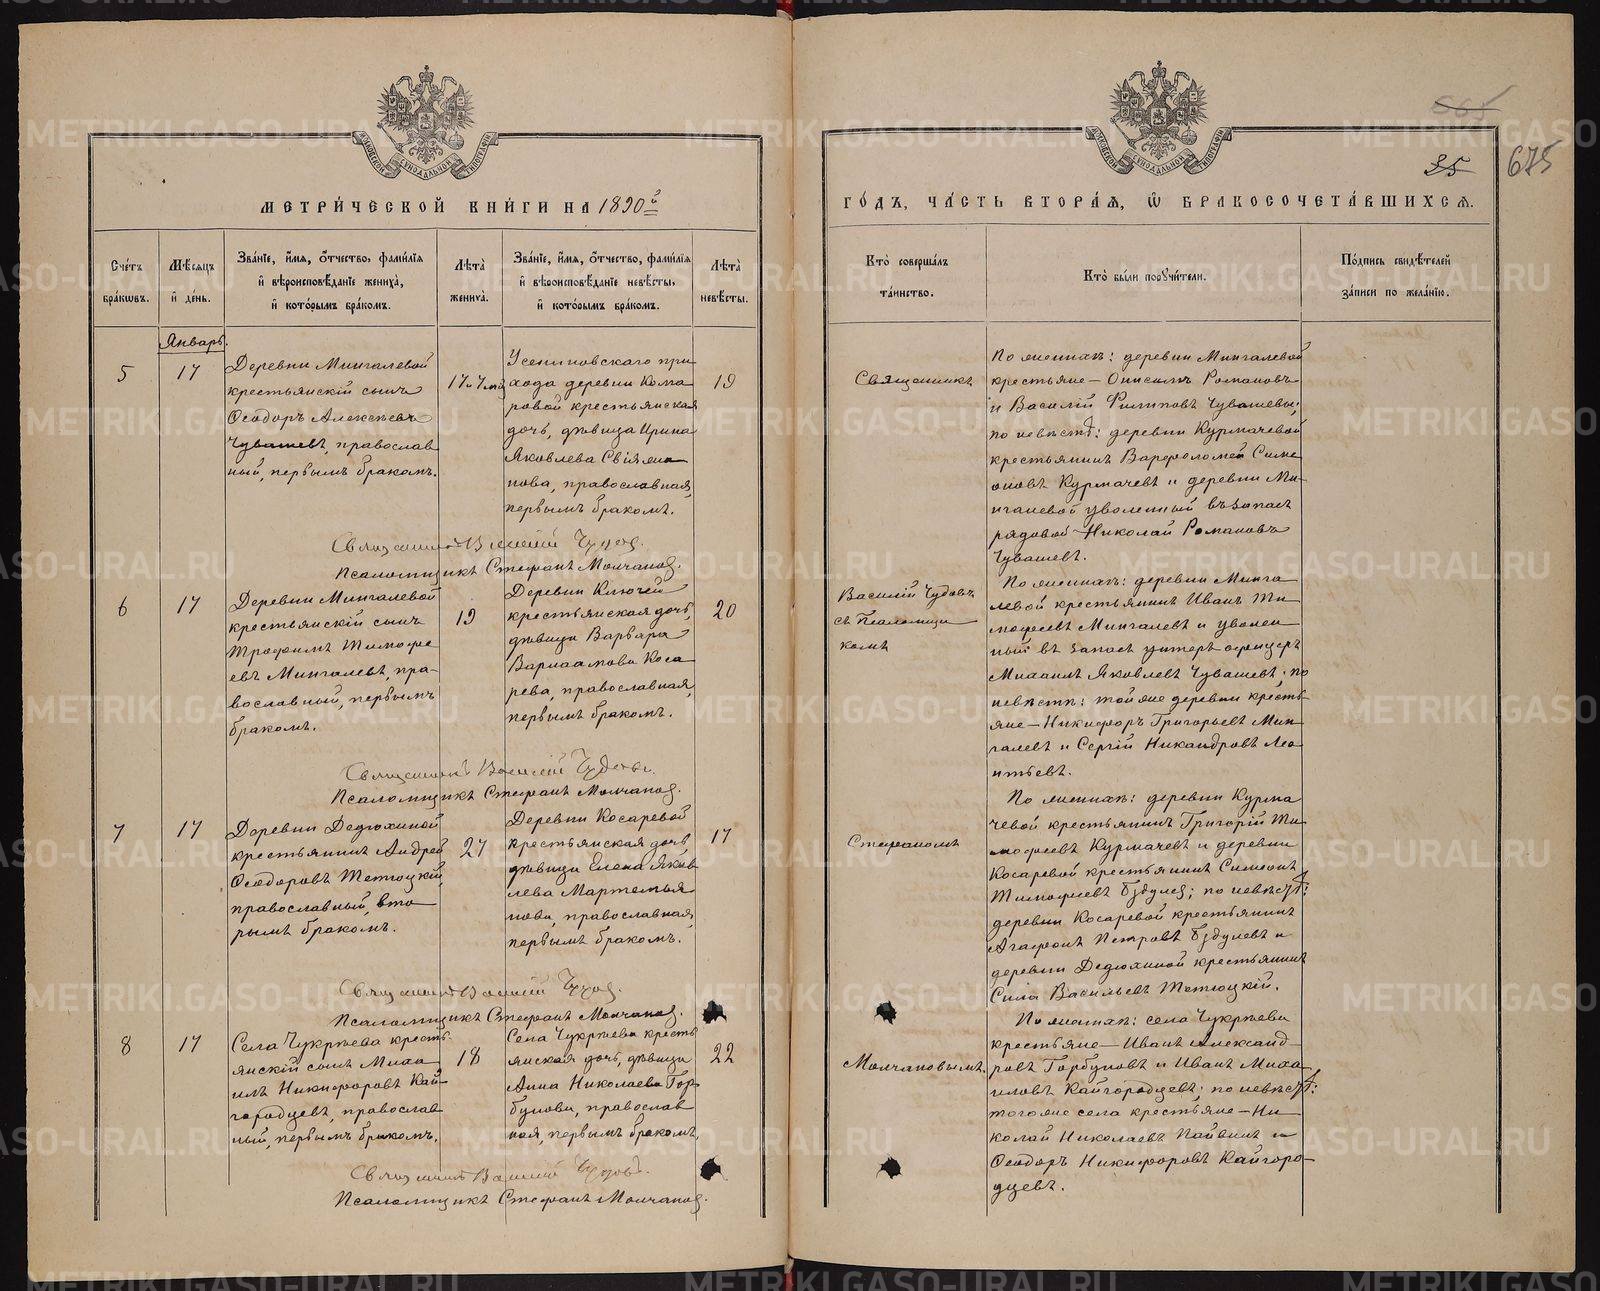 565
25
675
МЕТРИ́ЧЕСКОЙ КНИ́ГИ НА 1890й
ГО́ДЪ, ЧА́СТЬ ВТОРА́Я, Ѡ БРАКОСОЧЕТА́ВШИХСЯ.
Сче́тъ бра́кѡвъ.
Мѣ́сяцъ и́ де́нь.
Зва́нїе, и́мя, о́тчество, фами́лїя и́ вѣроисповѣ́данїе жениха̀, и́ кото́рымъ бра́комъ.
Лѣ́та жениха̀.
Зва́нїе, и́мя, о́тчество, фами́лїя и́ вѣроисповѣ́данїе невѣ́сты, и́ кото́рымъ бра́комъ.
Лѣ́та невѣ́сты.
Кто̀ соверша́лъ та́инство.
Кто̀ бы́ли порꙋчи́тели.
По́дпись свидѣ́телей за́писи по жела́нїю.
Январь.
5
17
Деревни Мингалевой
крестьянскій сынъ
Ѳеодоръ Алексѣевъ
Чувашевъ, православ
ный, первымъ бракомъ.
17 и 7 мѣ
Усениновскаго при
хода деревни Кома
ровой крестьянская
дочь, дѣвица Ирина
Яковлева
нова, православная,
первымъ бракомъ.
19
Священникъ Василій Чудовъ.
Псаломщикъ Стефанъ Молчановъ.
6
17
Деревни Мингалевой
крестьянскій сынъ
Трофимъ Тимофе
евъ Мингалевъ, пра-
вославный, первымъ
бракомъ.
19
Деревни Ключей
крестьянская дочь,
дѣвица Варвара
Варлаамова Коса
рева, православная,
первымъ бракомъ.
20
Священникъ Василій Чудовъ.
Псаломщикъ Стефанъ Молчановъ.
7
17
Деревни Дедюхиной
крестьянинъ Андрей
Ѳеодоровъ Тетюцкій,
православный, вто
рымъ бракомъ.
27
Деревни Косаревой
крестьянская дочь,
дѣвица Елена Яков
лева Мартемья
нова, православная,
первымъ бракомъ.
17
Священникъ Василій Чудовъ.
Псаломщикъ Стефанъ Молчановъ.
8
17
Села Чукрѣева кресть
янскій сынъ Миха
илъ Никифоровъ Кай-
городцевъ, православ
ный, первымъ бракомъ.
18
Села Чукрѣева кресть
янская дочь, дѣвица
Анна Николаева Гор-
бунова, православ
ная, первымъ бракомъ.
22
Священникъ Василій Чудовъ.
Псаломщикъ Стефанъ Молчановъ.
Священникъ
Василій Чудовъ
съ Псаломщи
комъ
Стефаномъ
Молчановымъ.
По женихѣ: деревни Мингалевой
крестьяне — Онисимъ Романовъ
и Василій Филиповъ Чувашевы;
по невѣстѣ: деревни Курмачевой
крестьянинъ Варфоломей Симе
оновъ Курмачевъ и деревни Ми-
нгалевой уволенный въ запасъ
рядовой — Николай Романовъ
Чувашевъ.
По женихѣ: деревни Минга
левой крестьянинъ Иванъ Ти-
мофеевъ Мингалевъ и уволен
ный въ запасъ унтеръ офицеръ
Михаилъ Яковлевъ Чувашевъ; по
невѣстѣ: той же деревни кресть
яне — Никифоръ Григорьевъ Мин
галевъ и Сергій Никандровъ Лео
нтьевъ.
По женихѣ: деревни Курма
чевой крестьянинъ Григорій Ти-
мофеевъ Курмачевъ и деревни
Косаревой крестьянинъ Симеонъ
Тимофеевъ; по невѣстѣ:
деревни Косаревой крестьянинъ
Агафонъ Петровъ и
деревни Дедюхиной крестьянинъ
Сила Васильевъ Тетюцкій.
По женихѣ: села Чукрѣева
крестьяне — Иванъ Александ
ровъ Горбуновъ и Иванъ Миха
иловъ Кайгородцевъ; по невѣстѣ:
того же села крестьяне — Ни
колай Николаевъ Пайвинъ и
Ѳеодоръ Никифоровъ Кайгоро-
дцевъ.
METRIKI.GASO-URAL.RU